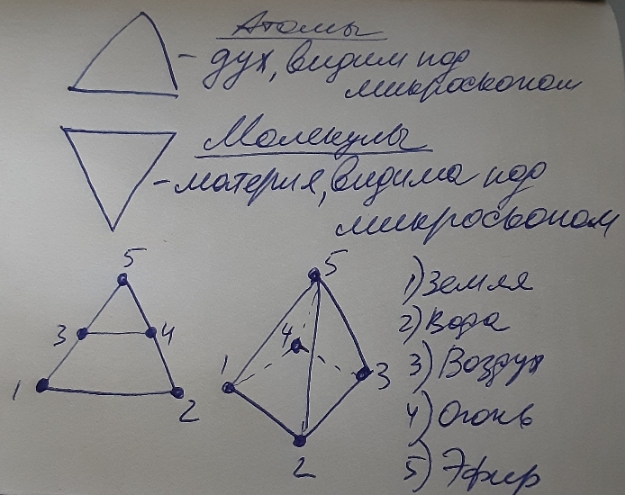 Атомы
- дух, видим под
микроскопом
Молекулы
- материя, видима под
микроскопом
5
3 4
1 2
5
4
1 3
2
1) Земля
2) Вода
3) Воздух
4) Огонь
5) Эфир